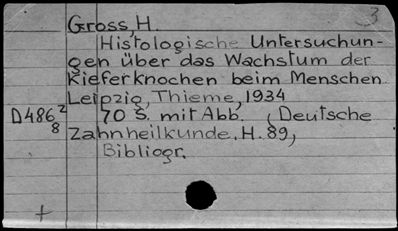 3
Gross, H.
Histologische Untersuchun-
gen über das Wachstum der
Kieferknochen beim Menschen
Leipzig, Thieme, 1934
D486 2/8 70 S. mit Abb. (Deutsche
Zahnheilkunde. H. 89,
Bibliogr.
+